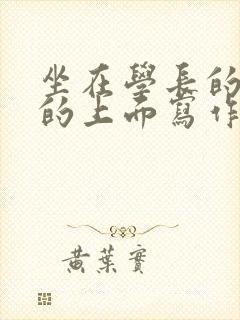 坐在學長的
的上而寫作
黃葉實